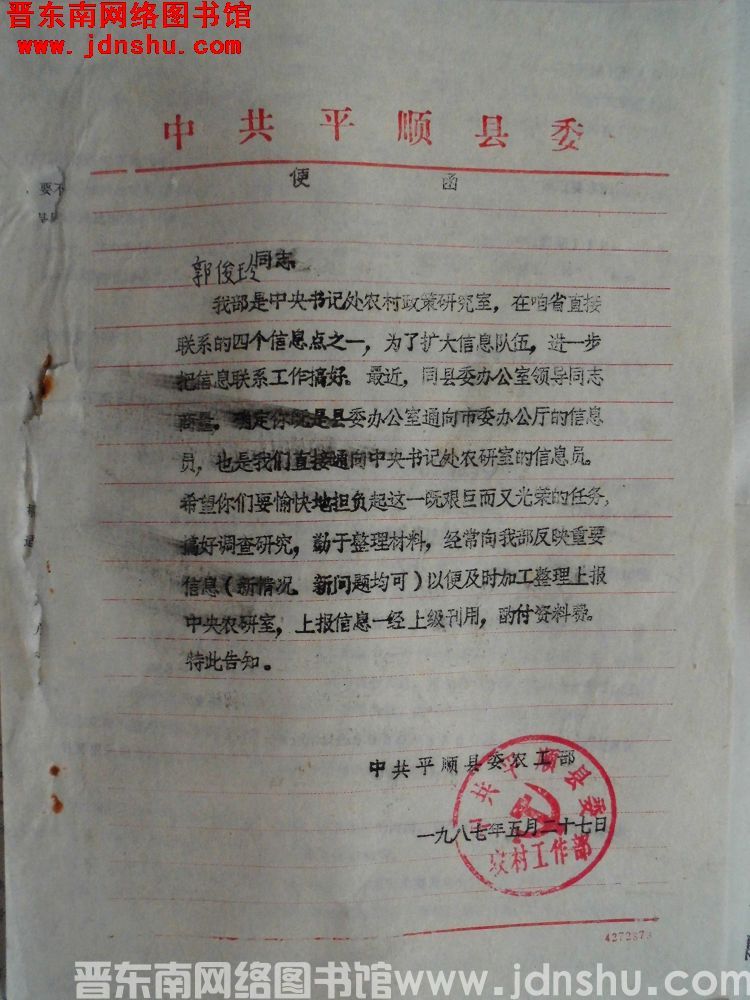 晋东南网络图书馆
www.jdnshu.com
中共平顺县委
便 函
要不
郭俊玲同志
我部是中央书记处农村政策研究室，在咱省直接
联系的四个信息点之一，为了扩大信息队伍，进一步
把信息联系工作搞好。最近，同县委办公室领导同志
商量，确定你既是县委办公室通向市委办公厅的信息
员，也是我们直接通向中央书记处农研室的信息员。
希望你们要愉快地担负起这一既艰巨而又光荣的任务，
搞好调查研究，勤于整理材料，经常向我部反映重要
信息（新情况、新问题均可）以便及时加工整理上报
中央农研室，上报信息一经上级刊用，酌付资料费。
特此告知。
中共平顺县委农工部
一九八七年五月二十七日
中共平顺县委
农村工作部
4272873
晋东南网络图书馆www.jdnshu.com